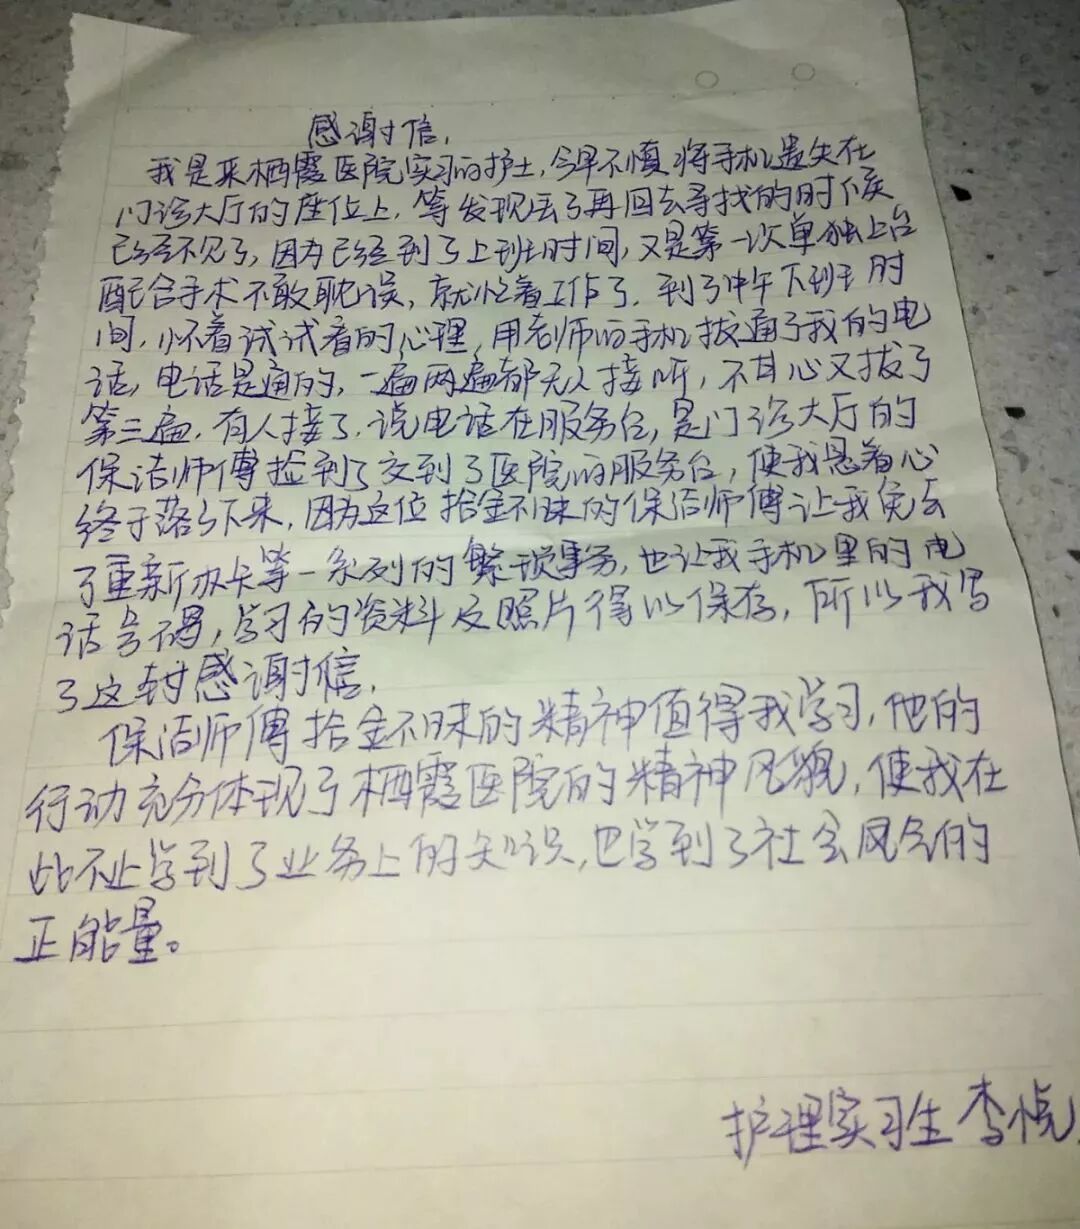 感谢信.
我是来栖霞医院实习的护士,今早不慎将手机遗失在
门诊大厅的座位上.等发现丢了再回去寻找的时候
已经不见了,因为已经到了上班时间,又是第一次单独上台
配合手术不敢耽误,就忙着工作了.到了中午下班时
间,怀着试试看的心理,用老师的手机拔通了我的电
话,电话是通的,一遍两遍都无人接听,不甘心又拔了
第三遍.有人接了.说电话在服务台,是门诊大厅的
保洁师傅捡到了交到了医院的服务台,使我悬着心
终于落了下来,因为这位拾金不昧的保洁师傅让我免去
了重新办卡等一系列的繁琐事务,也让我手机里的电
话号码,学习的资料及照片得以保存,所以我写
了这封感谢信.
保洁师傅拾金不昧的精神值得我学习,他的
行动充分体现了栖霞医院的精神风貌,使我在
此不止学到了业务上的知识,也学到了社会风气的
正能量。
护理实习生 李悦